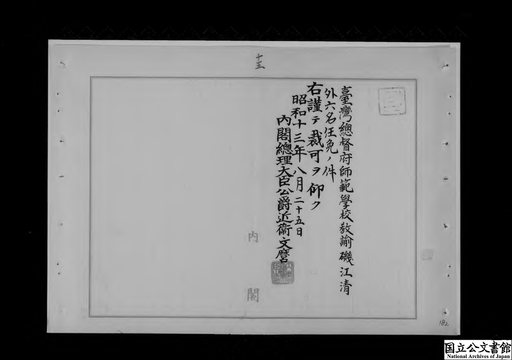 十三
臺灣總督府師範學校教諭磯江清
外六名任免ノ件
右謹テ裁可ヲ仰ク
昭和十三年八月二十五日
内閣總理大臣公爵近衛文麿
内閣
国立公文書館
National Archives of Japan